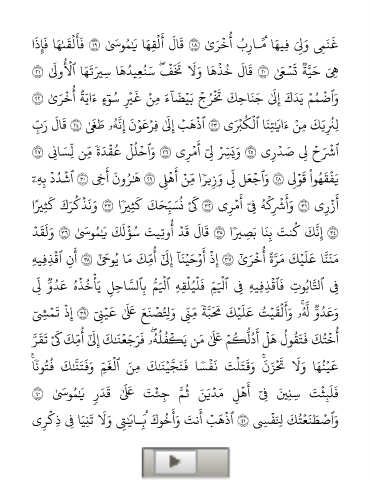 غَنَمِى وَلِىَ فِيهَا مَـَٔارِبُ أُخْرَىٰ ۝١٨ قَالَ أَلْقِهَا يَـٰمُوسَىٰ ۝١٩ فَأَلْقَىٰهَا فَإِذَا
هِىَ حَيَّةٌ تَسْعَىٰ ۝٢٠ قَالَ خُذْهَا وَلَا تَخَفْ ۖ سَنُعِيدُهَا سِيرَتَهَا ٱلْأُولَىٰ ۝٢١
وَٱضْمُمْ يَدَكَ إِلَىٰ جَنَاحِكَ تَخْرُجْ بَيْضَآءَ مِنْ غَيْرِ سُوٓءٍ ءَايَةً أُخْرَىٰ ۝٢٢
لِنُرِيَكَ مِنْ ءَايَـٰتِنَا ٱلْكُبْرَى ۝٢٣ ٱذْهَبْ إِلَىٰ فِرْعَوْنَ إِنَّهُۥ طَغَىٰ ۝٢٤ قَالَ رَبِّ
ٱشْرَحْ لِى صَدْرِى ۝٢٥ وَيَسِّرْ لِىٓ أَمْرِى ۝٢٦ وَٱحْلُلْ عُقْدَةً مِّن لِّسَانِى ۝٢٧
يَفْقَهُوا۟ قَوْلِى ۝٢٨ وَٱجْعَل لِّى وَزِيرًا مِّنْ أَهْلِى ۝٢٩ هَـٰرُونَ أَخِى ۝٣٠ ٱشْدُدْ بِهِۦٓ
أَزْرِى ۝٣١ وَأَشْرِكْهُ فِىٓ أَمْرِى ۝٣٢ كَىْ نُسَبِّحَكَ كَثِيرًا ۝٣٣ وَنَذْكُرَكَ كَثِيرًا
۝٣٤ إِنَّكَ كُنتَ بِنَا بَصِيرًا ۝٣٥ قَالَ قَدْ أُوتِيتَ سُؤْلَكَ يَـٰمُوسَىٰ ۝٣٦ وَلَقَدْ
مَنَنَّا عَلَيْكَ مَرَّةً أُخْرَىٰٓ ۝٣٧ إِذْ أَوْحَيْنَآ إِلَىٰٓ أُمِّكَ مَا يُوحَىٰٓ ۝٣٨ أَنِ ٱقْذِفِيهِ
فِى ٱلتَّابُوتِ فَٱقْذِفِيهِ فِى ٱلْيَمِّ فَلْيُلْقِهِ ٱلْيَمُّ بِٱلسَّاحِلِ يَأْخُذْهُ عَدُوٌّ لِّى
وَعَدُوٌّ لَّهُۥ ۚ وَأَلْقَيْتُ عَلَيْكَ مَحَبَّةً مِّنِّى وَلِتُصْنَعَ عَلَىٰ عَيْنِىٓ ۝٣٩ إِذْ تَمْشِىٓ
أُخْتُكَ فَتَقُولُ هَلْ أَدُلُّكُمْ عَلَىٰ مَن يَكْفُلُهُۥ ۖ فَرَجَعْنَـٰكَ إِلَىٰٓ أُمِّكَ كَىْ تَقَرَّ
عَيْنُهَا وَلَا تَحْزَنَ ۚ وَقَتَلْتَ نَفْسًا فَنَجَّيْنَـٰكَ مِنَ ٱلْغَمِّ وَفَتَنَّـٰكَ فُتُونًا ۚ
فَلَبِثْتَ سِنِينَ فِىٓ أَهْلِ مَدْيَنَ ثُمَّ جِئْتَ عَلَىٰ قَدَرٍ يَـٰمُوسَىٰ ۝٤٠
وَٱصْطَنَعْتُكَ لِنَفْسِى ۝٤١ ٱذْهَبْ أَنتَ وَأَخُوكَ بِـَٔايَـٰتِى وَلَا تَنِيَا فِى ذِكْرِى